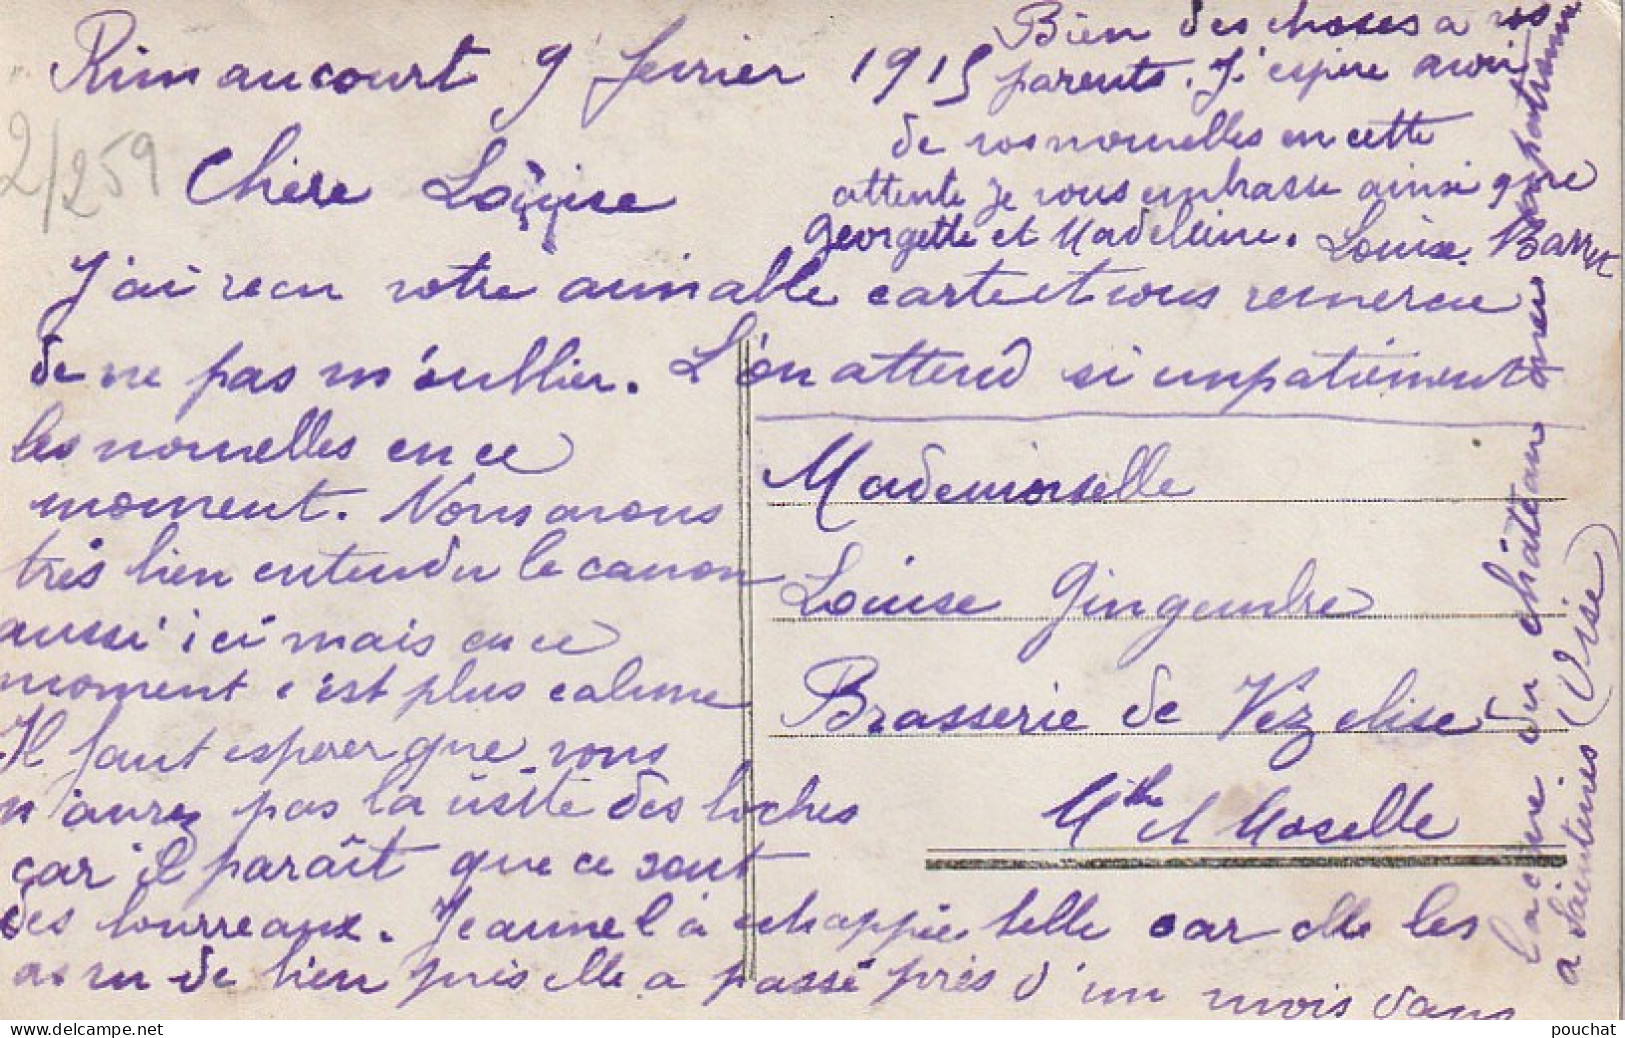 Rimaucourt 9 fevrier 1915
Chère Louise
J'ai recu votre aimable carte et vous remercie
de ne pas m'oublier. L'on attend si impatiemment
les nouvelles en ce
moment. Nous avons
très bien entendu le canon
aussi ici mais en ce
moment c'est plus calme
Il faut esperer que vous
n'aurez pas la visite des boches
car il paraît que ce sont
des bourreaux. Jeanne l'à échappée belle car elle les
a vu de bien puis elle a passé près d'un mois dans
la cave du château
a Saintines (Oise)
Bien des choses a vos
parents. J'espère avoir
de vos nouvelles en cette
attente je vous embrasse ainsi que
Georgette et Madeleine. Louise Barret
Mademoiselle
Louise Gingembre
Brasserie de Vézelise
Mthe et Moselle
2/259
pouchat